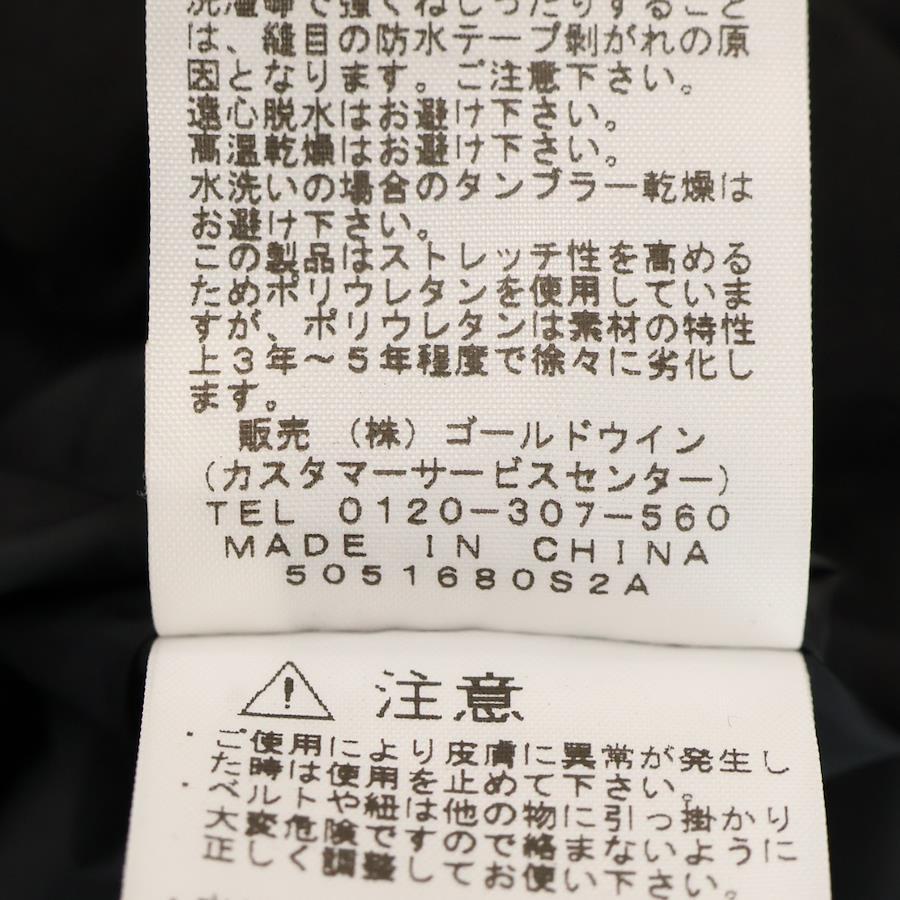 洗濯時で強くねじったりすること
は、縫目の防水テープ剥がれの原
因となります。ご注意下さい。
遠心脱水はお避け下さい。
高温乾燥はお避け下さい。
水洗いの場合のタンブラー乾燥は
お避け下さい。
この製品はストレッチ性を高める
ためポリウレタンを使用していま
すが、ポリウレタンは素材の特性
上3年～5年程度で徐々に劣化し
ます。
販売 (株) ゴールドウイン
(カスタマーサービスセンター)
TEL 0120-307-560
MADE IN CHINA
5051680S2A
注意
ご使用により皮膚に異常が発生し
た時は使用を止めて下さい。
ベルトや紐は他の物に引っ掛かり
大変危険ですので絡まないように
正しく調整してお使い下さい。